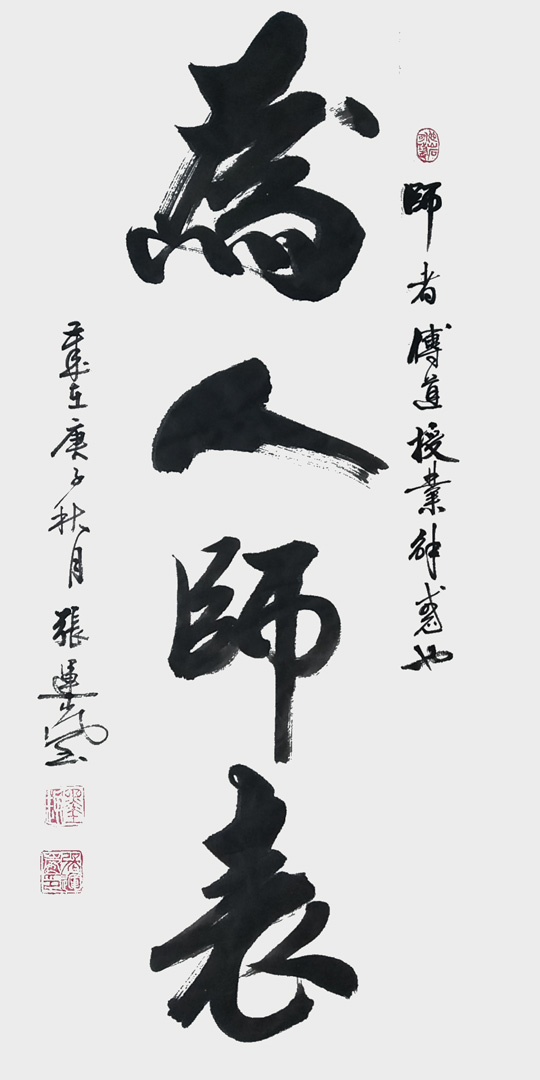 師者傳道授業解惑也
為人師表
歲在庚子秋月張運